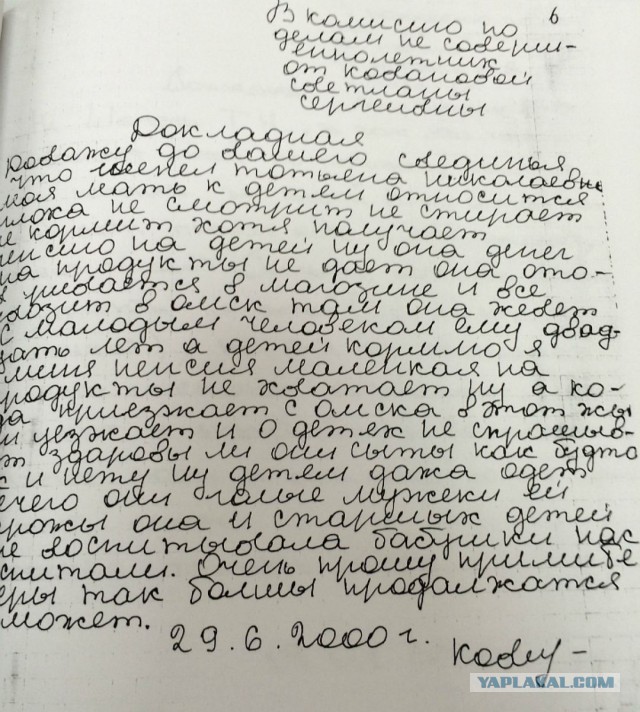 6
В комисию по
делам не соверш-
еннолетних
от Ковановой
светланы
сергеивны
Докладная
доважу до вашего свединья
что Шенел татьяна николаевна
моя мать к детям относится
плоха не смотрит не стирает
не кормит хотя получает
пенсию на детей ну она денег
на продукты не дает она ото-
варивается в магозине и все
вазит в омск там она жевет
с малодым человеком ему двад-
цать лет а детей кормлю я
меня пенсия маленкая на
продукты не хватает ну а ко-
да приезжает с омска в тот жы
уезжает и о детях не спрашыв-
т здаровы ли они сыты как будто
х и нету ну детям дажа одет
ечего они голые мужеки ей
орожы она и старшых детей
не воспитывала бабушки нас
спитали. Очень прошу примите
еры так болшы продалжатся
может.
29.6.2000 г.
Кову-
YAPLAKAL.COM